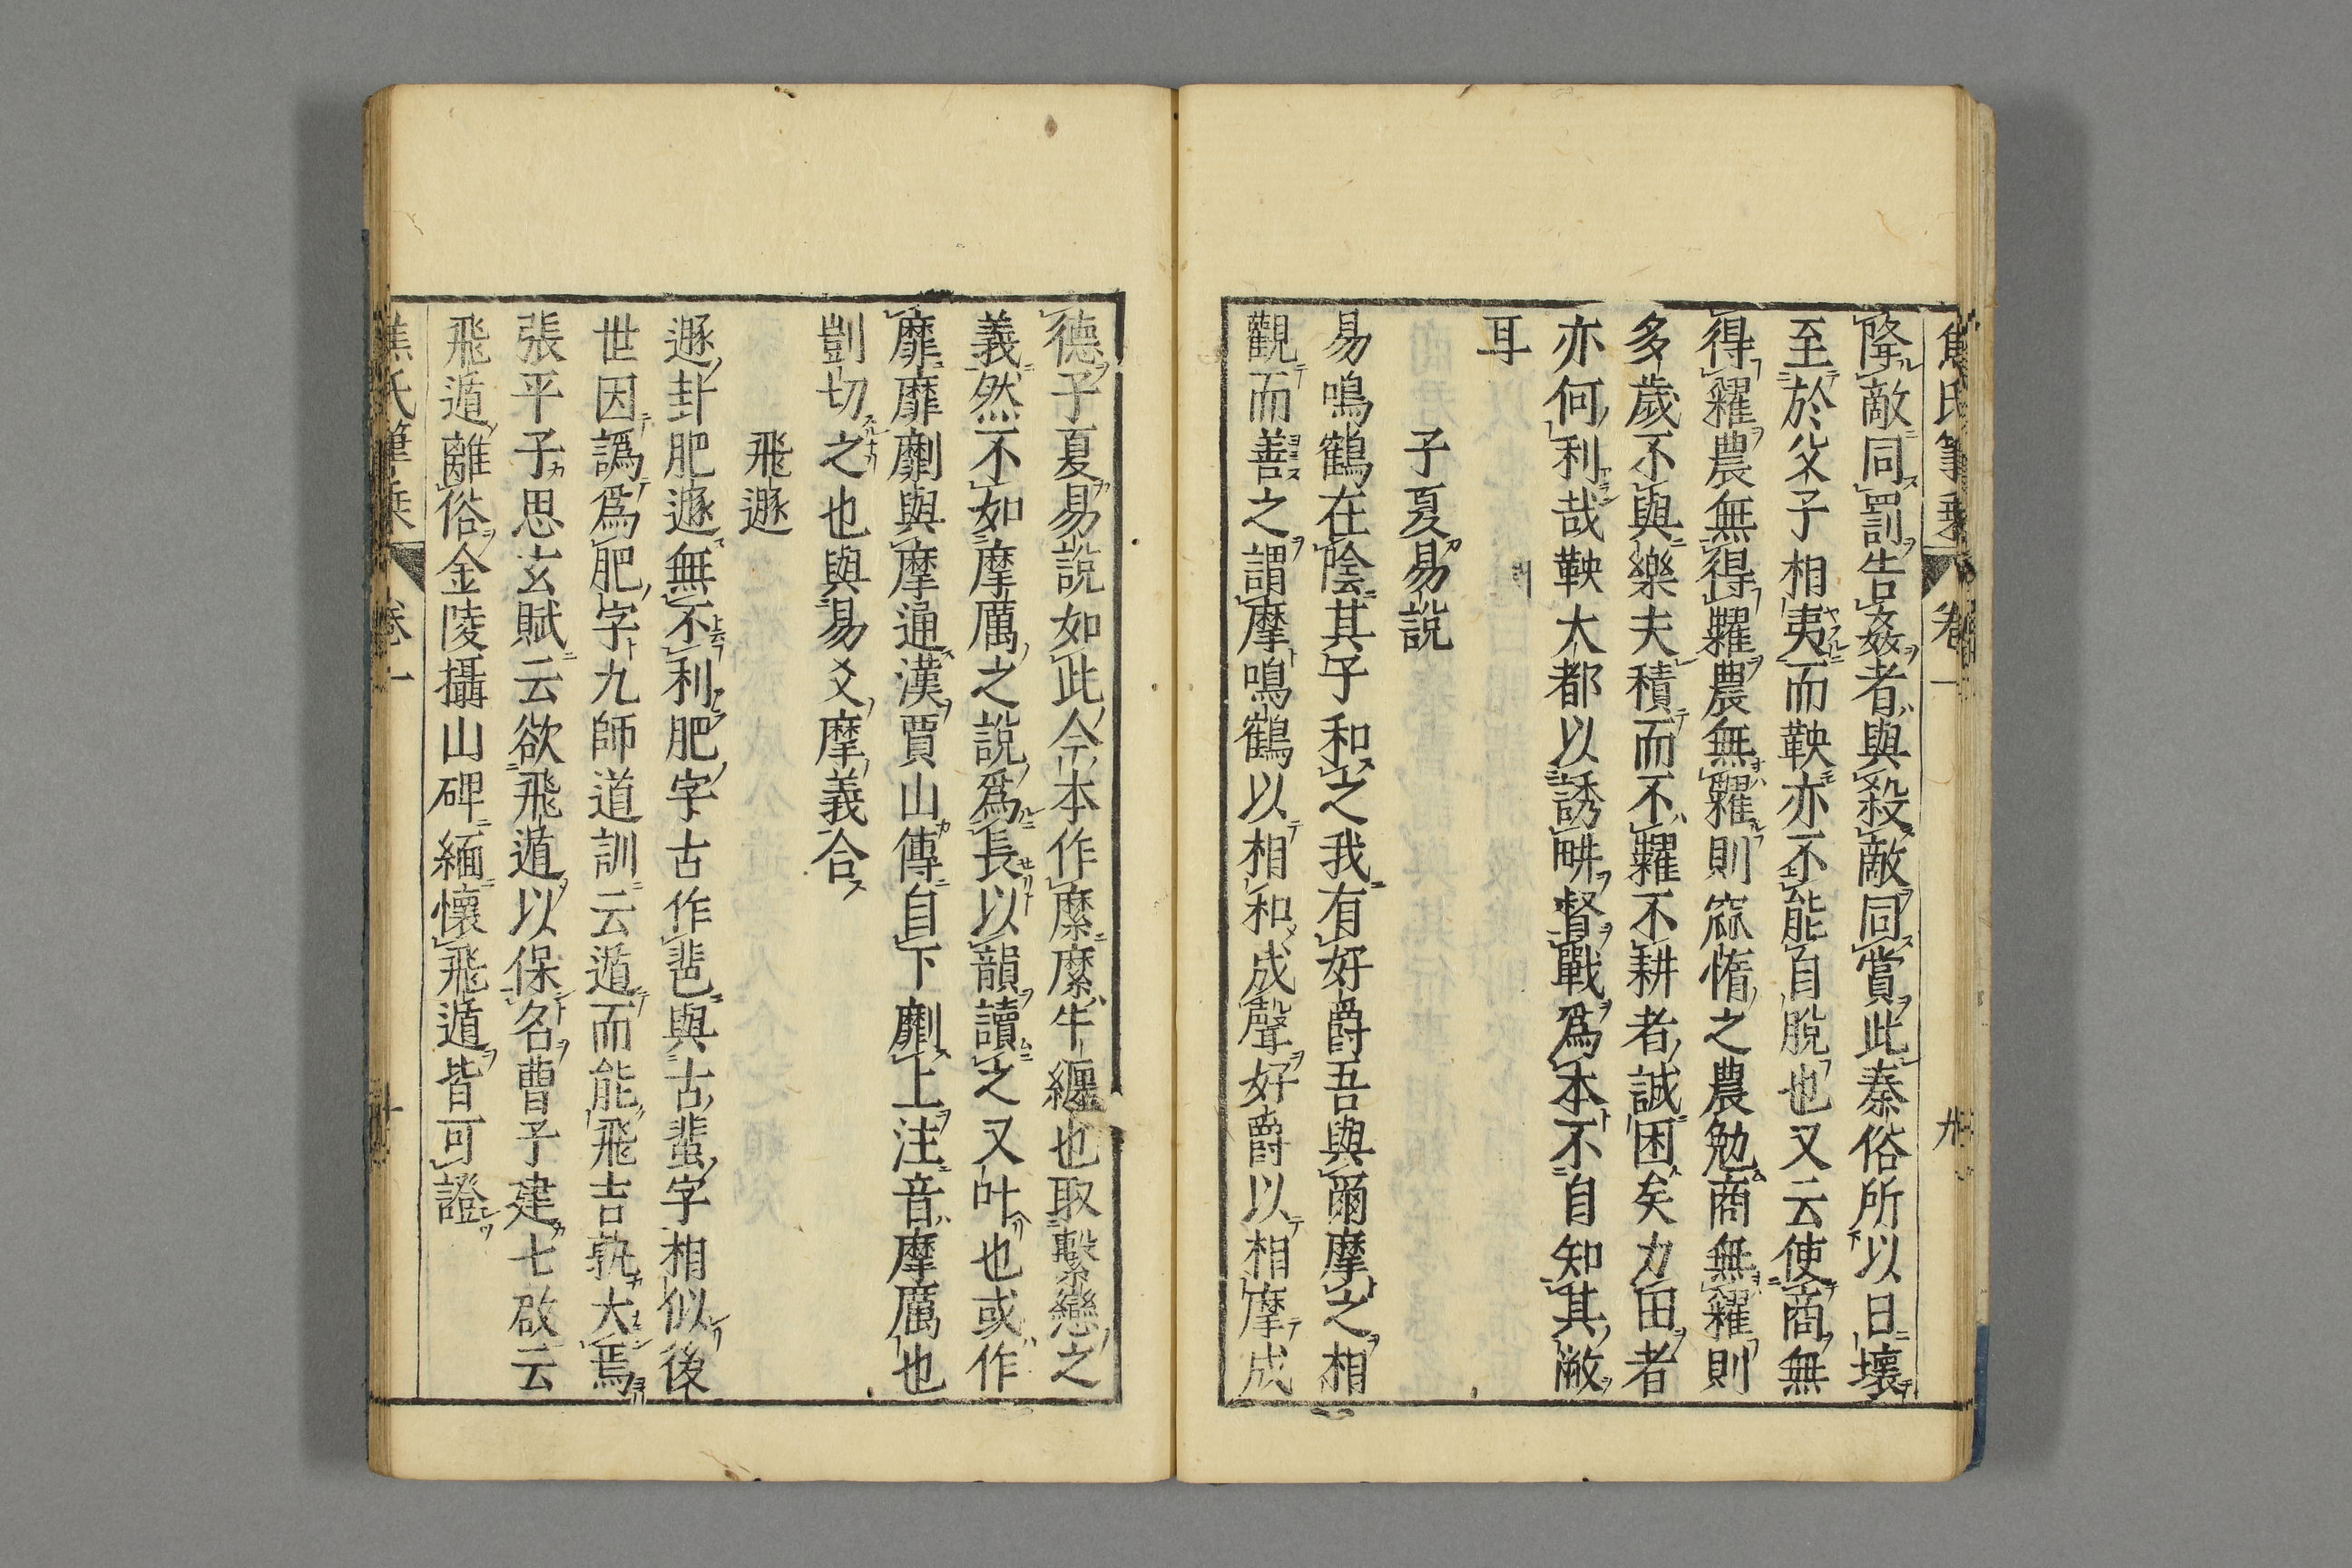 焦氏筆乗 卷一 九
降敵同罰告姦者與殺敵同賞此秦俗所以日壞
至於父子相夷而鞅亦不能自脫也又云使商無
得糴農無得糶農無糶則窳惰之農勉商無糴則
多歲不與樂夫積而不糶不耕者誠困矣力田者
亦何利哉鞅大都以誘畊督戰爲本不自知其敝
耳
子夏易說
易鳴鶴在陰其子和之我有好爵吾與爾摩之相
觀而善之謂摩鳴鶴以相和成聲好爵以相摩成
德子夏易說如此今本作縻縻牛纏也取繫戀之
義然不如摩厲之說爲長以韻讀之又叶也或作
靡靡劘與摩通漢賈山傳自下劘上注音摩厲也
剴切之也與易爻摩義合
飛遯
遯卦肥遯無不利肥字古作𦐐與古蜚字相似後
世因譌爲肥字九師道訓云遁而能飛吉孰大焉
張平子思玄賦云欲飛遁以保名曹子建七啟云
飛遁離俗金陵攝山碑緬懷飛遁皆可證
焦氏筆乗 卷一 十